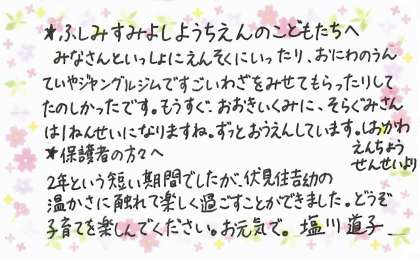 ★ふしみすみよしようちえんのこどもたちへ
みなさんといっしょにえんそくにいったり、おにわのうん
ていやジャングルジムですごいわざをみせてもらったりして
たのしかったです。もうすぐ、おおきいくみに、そらぐみさん
は1ねんせいになりますね。ずっとおうえんしています。しおかわ
えんちょう
せんせいより
★保護者の方々へ
2年という短い期間でしたが、伏見住吉幼の
温かさに触れて楽しく過ごすことができました。どうぞ
子育てを楽しんでください。お元気で。 塩川 道子